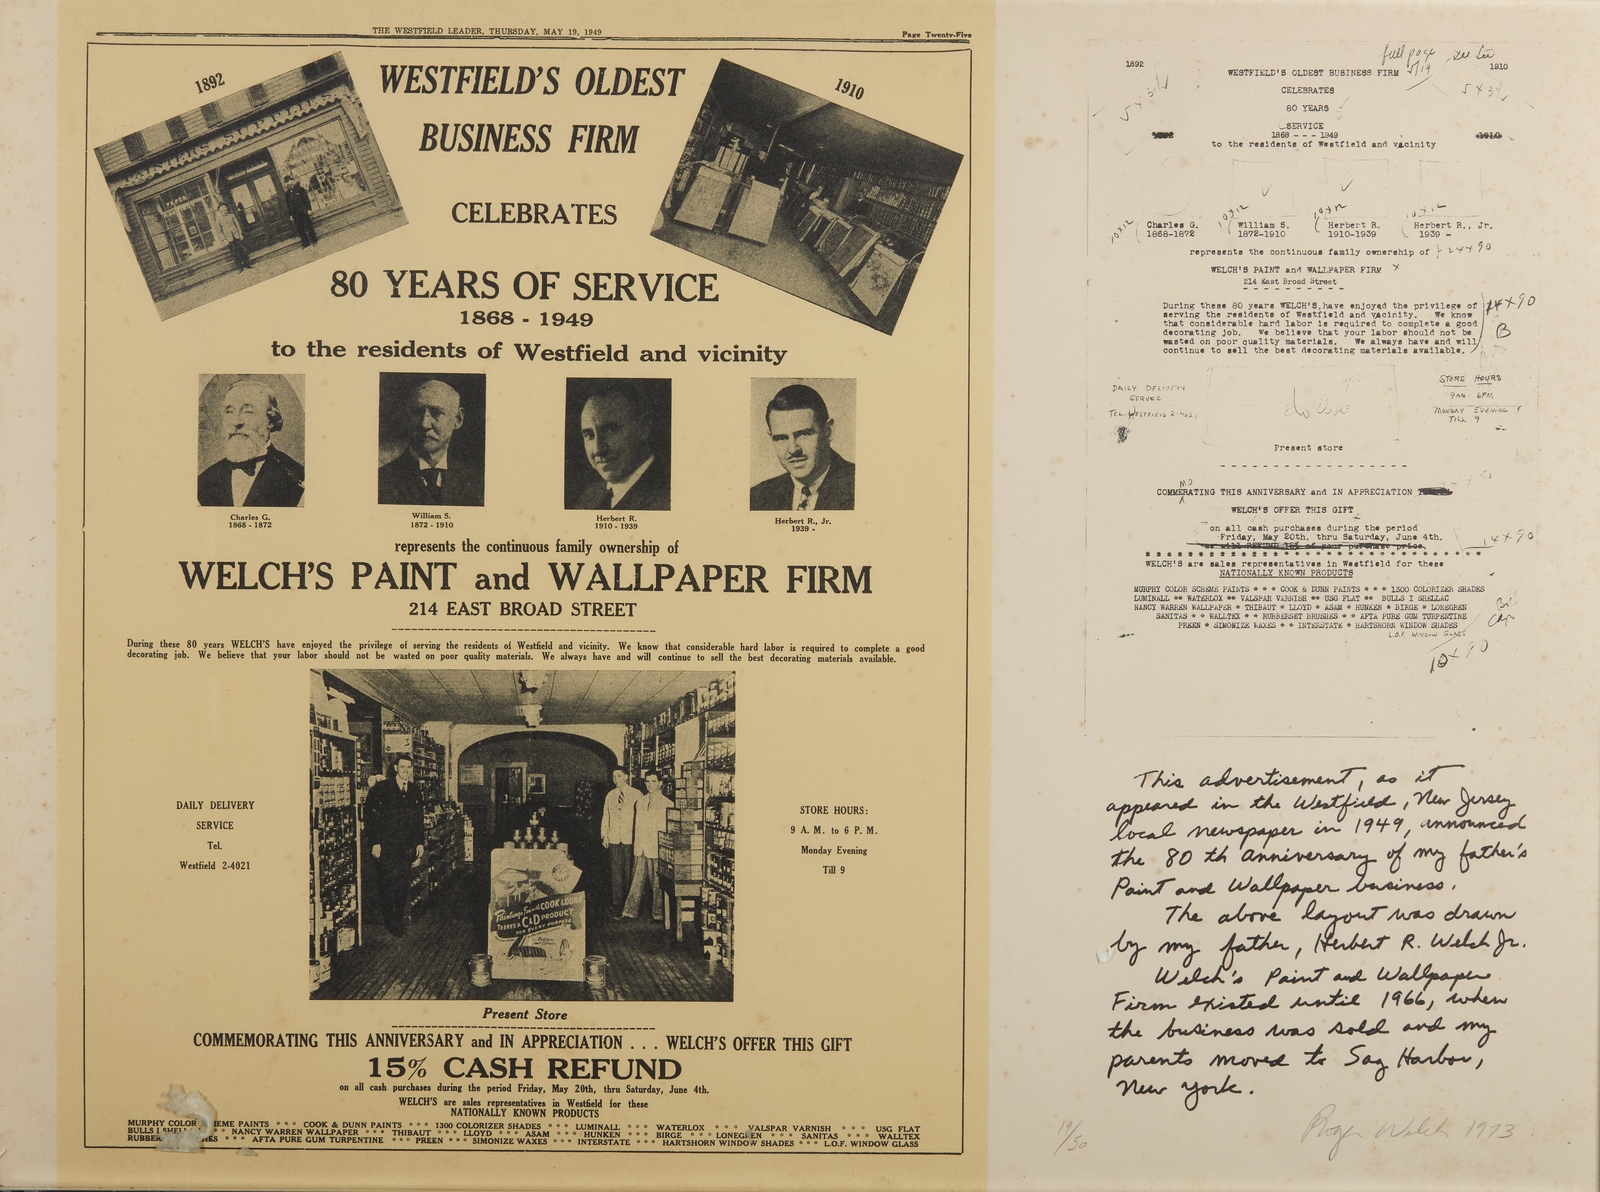 THE WESTFIELD LEADER, THURSDAY, MAY 19, 1949
Page Twenty-Five
1892
1910
WESTFIELD'S OLDEST
BUSINESS FIRM
CELEBRATES
80 YEARS OF SERVICE
1868 - 1949
to the residents of Westfield and vicinity
Charles G.
1868 - 1872
William S.
1872 - 1910
Herbert R.
1910 - 1939
Herbert R., Jr.
1939 -
represents the continuous family ownership of
WELCH'S PAINT and WALLPAPER FIRM
214 EAST BROAD STREET
During these 80 years WELCH'S have enjoyed the privilege of serving the residents of Westfield and vicinity. We know that considerable hard labor is required to complete a good
decorating job. We believe that your labor should not be wasted on poor quality materials. We always have and will continue to sell the best decorating materials available.
DAILY DELIVERY
SERVICE
Tel.
Westfield 2-4021
Paintings Fun with COOK & DUNN
THERE'S A C&D PRODUCT
FOR EVERY PURPOSE
STORE HOURS:
9 A. M. to 6 P. M.
Monday Evening
Till 9
Present Store
COMMEMORATING THIS ANNIVERSARY and IN APPRECIATION . . . WELCH'S OFFER THIS GIFT
15% CASH REFUND
on all cash purchases during the period Friday, May 20th, thru Saturday, June 4th.
WELCH'S are sales representatives in Westfield for these
NATIONALLY KNOWN PRODUCTS
MURPHY COLOR HEME PAINTS * * * COOK & DUNN PAINTS * * * 1300 COLORIZER SHADES * * * LUMINALL * * * WATERLOX * * * VALSPAR VARNISH * * * USG FLAT
BULLS I SHELL * * * NANCY WARREN WALLPAPER * * * THIBAUT * * * LLOYD * * * ASAM * * * HUNKEN * * * BIRGE * * * LONEGREN * * * SANITAS * * * WALLTEX
RUBBER HES * * * AFTA PURE GUM TURPENTINE * * * PREEN * * * SIMONIZE WAXES * * * INTERSTATE * * * HARTSHORN WINDOW SHADES * * * L.O.F. WINDOW GLASS
full page
5/19
1892
1910
WESTFIELD'S OLDEST BUSINESS FIRM
5 X 3½
5 X 3½
CELEBRATES
80 YEARS
SERVICE
1868 - - - 1949
1910
to the residents of Westfield and vicinity
10x12
10x12
10x12
10x12
Charles G.
1868-1872
William S.
1872-1910
Herbert R.
1910-1939
Herbert R., Jr.
1939 -
represents the continuous family ownership of
24x90
WELCH'S PAINT and WALLPAPER FIRM
214 East Broad Street
During these 80 years WELCH'S have enjoyed the privilege of
serving the residents of Westfield and vicinity. We know
that considerable hard labor is required to complete a good
decorating job. We believe that your labor should not be
wasted on poor quality materials. We always have and will
continue to sell the best decorating materials available.
14x90
B
DAILY DELIVERY
SERVICE
TEL. WESTFIELD 2-4021
STORE HOURS
9AM 6PM
MONDAY EVENING
TILL 9
Present store
MO
COMMERATING THIS ANNIVERSARY and IN APPRECIATION
WELCH'S OFFER THIS GIFT
on all cash purchases during the period
Friday, May 20th. thru Saturday, June 4th.
we will REFUND 15% of your purchase price.
14x90
WELCH'S are sales representatives in Westfield for these
NATIONALLY KNOWN PRODUCTS
MURPHY COLOR SCHEME PAINTS * * * COOK & DUNN PAINTS * * * 1300 COLORIZER SHADES
LUMINALL ** WATERLOX ** VALSPAR VARNISH ** USG FLAT ** BULLS I SHELLAC
NANCY WARREN WALLPAPER * THIBAUT * LLOYD * ASAM * HUNKEN * BIRGE * LONEGREN
SANITAS * * WALLTEX * * RUBBERSET BRUSHES * * AFTA PURE GUM TURPENTINE
PREEN * SIMONIZE WAXES * * INTERSTATE * HARTSHORN WINDOW SHADES
L.O.F. WINDOW GLASS
10x90
This advertisement, as it
appeared in the Westfield, New Jersey
local newspaper in 1949, announced
the 80 th anniversary of my father's
Paint and Wallpaper business.
The above layout was drawn
by my father, Herbert R. Welch Jr.
Welch's Paint and Wallpaper
Firm existed until 1966, when
the business was sold and my
parents moved to Sag Harbor,
New York.
19/50
Roger Welch 1973